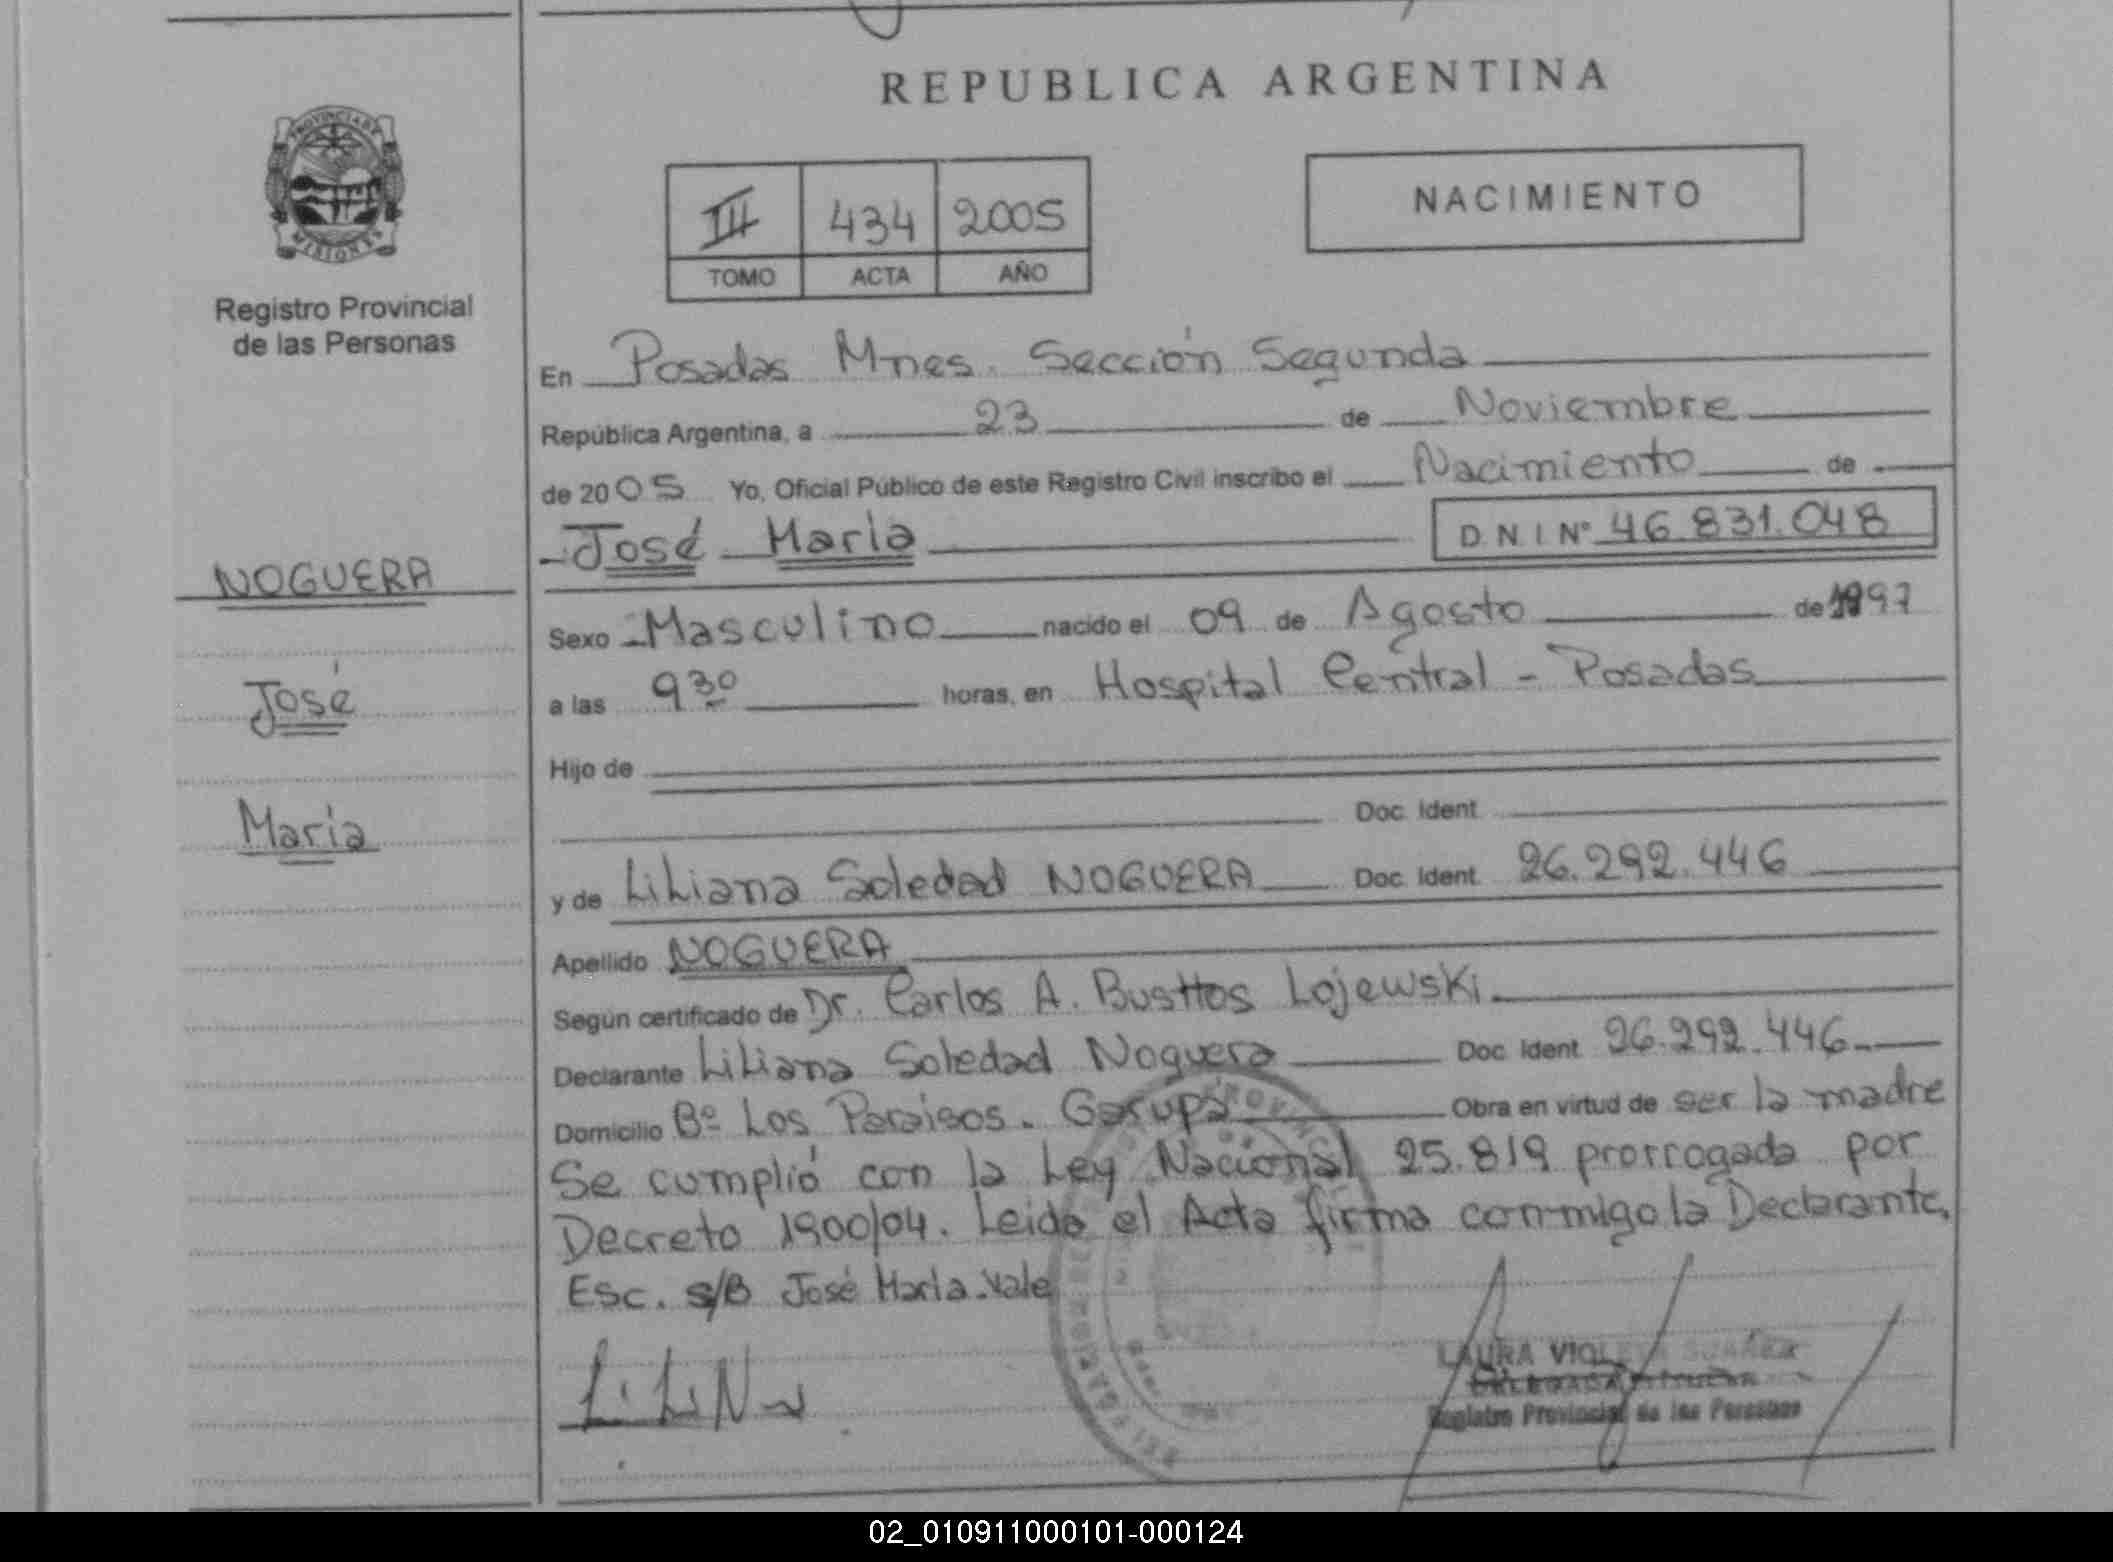 REPUBLICA ARGENTINA
PROVINCIA DE
MISIONES
Registro Provincial
de las Personas
III 434 2005
TOMO ACTA AÑO
NACIMIENTO
En Posadas Mnes. Sección Segunda
República Argentina, a 23 de Noviembre
de 2005 Yo, Oficial Público de este Registro Civil inscribo el Nacimiento de
José María
D N I Nº 46.831.048
NOGUERA
José
María
Sexo Masculino nacido el 09 de Agosto de 1997
a las 9 30 horas, en Hospital Central - Posadas
Hijo de
Doc. Ident.
y de Liliana Soledad NOGUERA Doc. Ident. 26.292.446
Apellido NOGUERA
Según certificado de Dr. Carlos A. Busttos Lojewski.
Declarante Liliana Soledad Noguera Doc. Ident. 26.292.446
Domicilio Bº Los Paraisos. Garupá Obra en virtud de ser la madre
Se cumplió con la Ley Nacional 25.819 prorrogada por
Decreto 1900/04. Leida el Acta firma conmigo la Declarante.
Esc. s/B José María. Vale
LAURA VIOLETA
Registro Provincial de las Personas
02_010911000101-000124